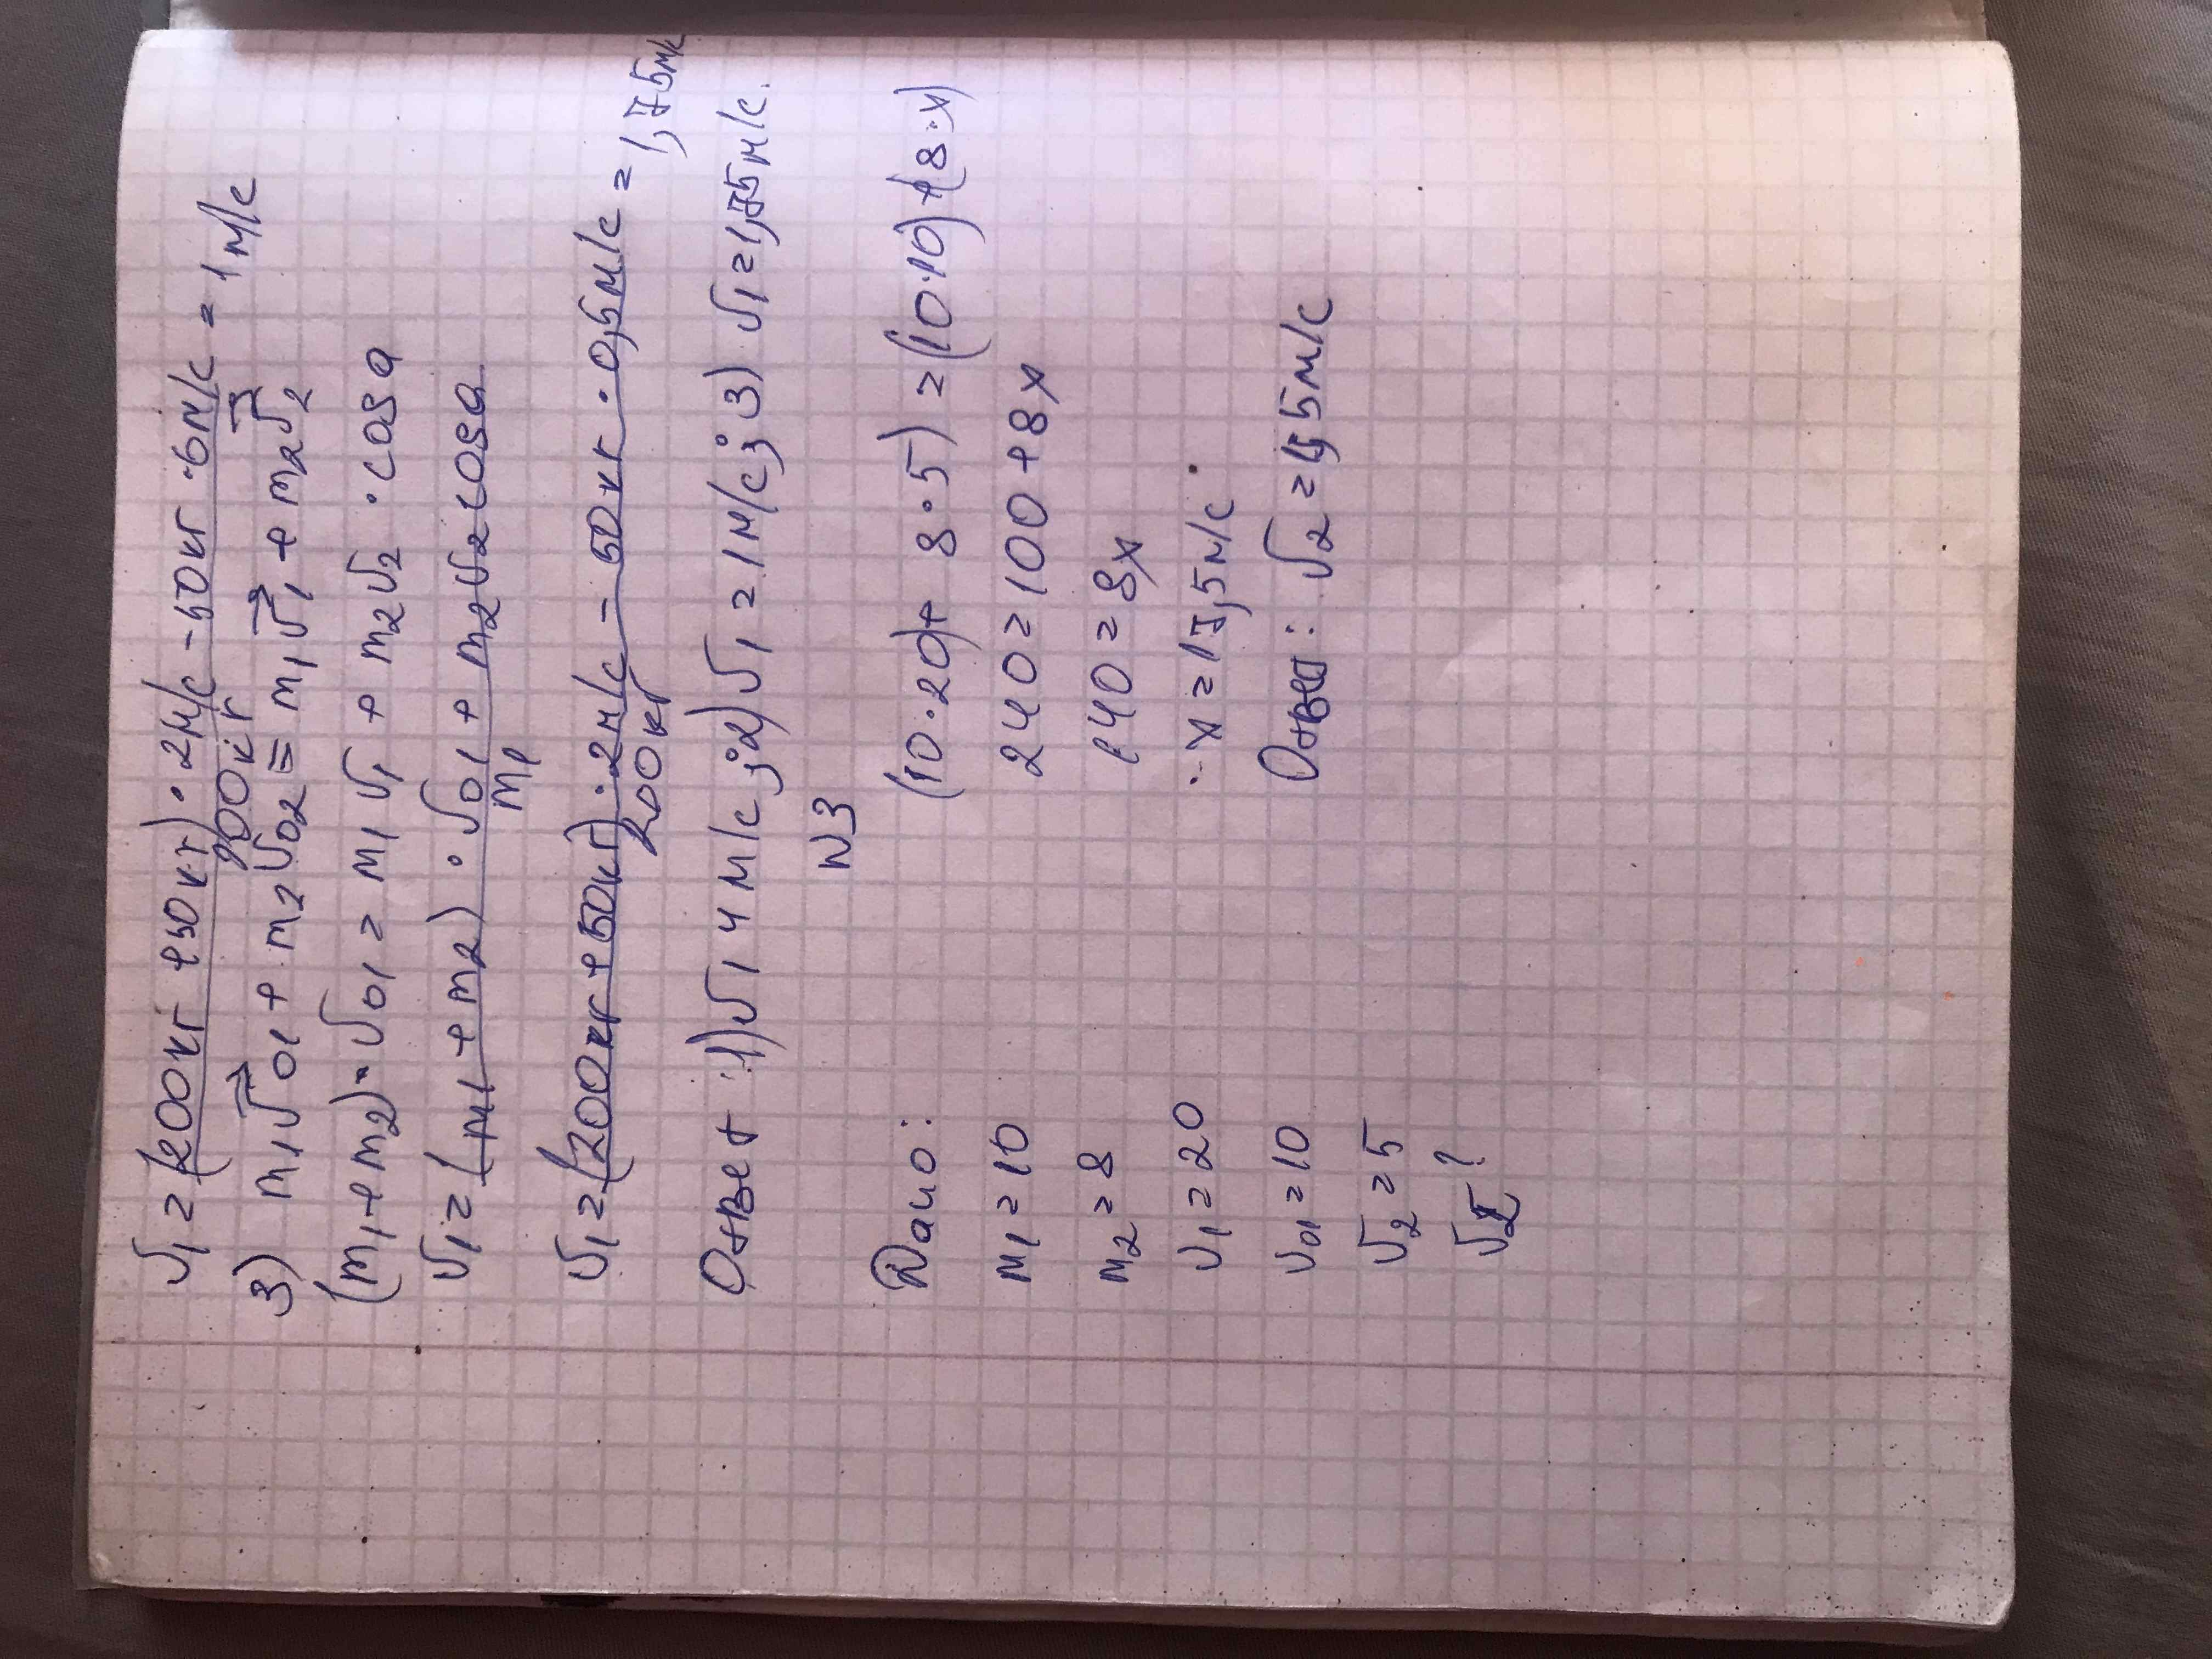 v₁ = (200кг + 50кг) · 2м/с - 50кг · 6м/с / 200кг = 1 м/с
3) m₁v⃗₀₁ + m₂v₀₂ = m₁v⃗₁ + m₂v⃗₂
(m₁ + m₂) · v₀₁ = m₁v₁ + m₂v₂ · cos a
v₁ = (m₁ + m₂) · v₀₁ + m₂v₂cosa / m₁
v₁ = (200кг + 50кг) · 2м/с - 50кг · 0,5м/с / 200кг = 1,75м/с
Ответ 1) v₁ 4 м/с ; 2) v₁ = 1м/с; 3) v₁ = 1,75м/с.
N3
Дано:
m₁ = 10
m₂ = 8
v₁ = 20
v₀₁ = 10
v₂ = 5
v₂ ?
(10·20)+ 8·5) = (10·10)+(8·x)
240 = 100 + 8x
140 = 8x
x = 17,5м/с
Ответ: v₂ = 17,5м/с